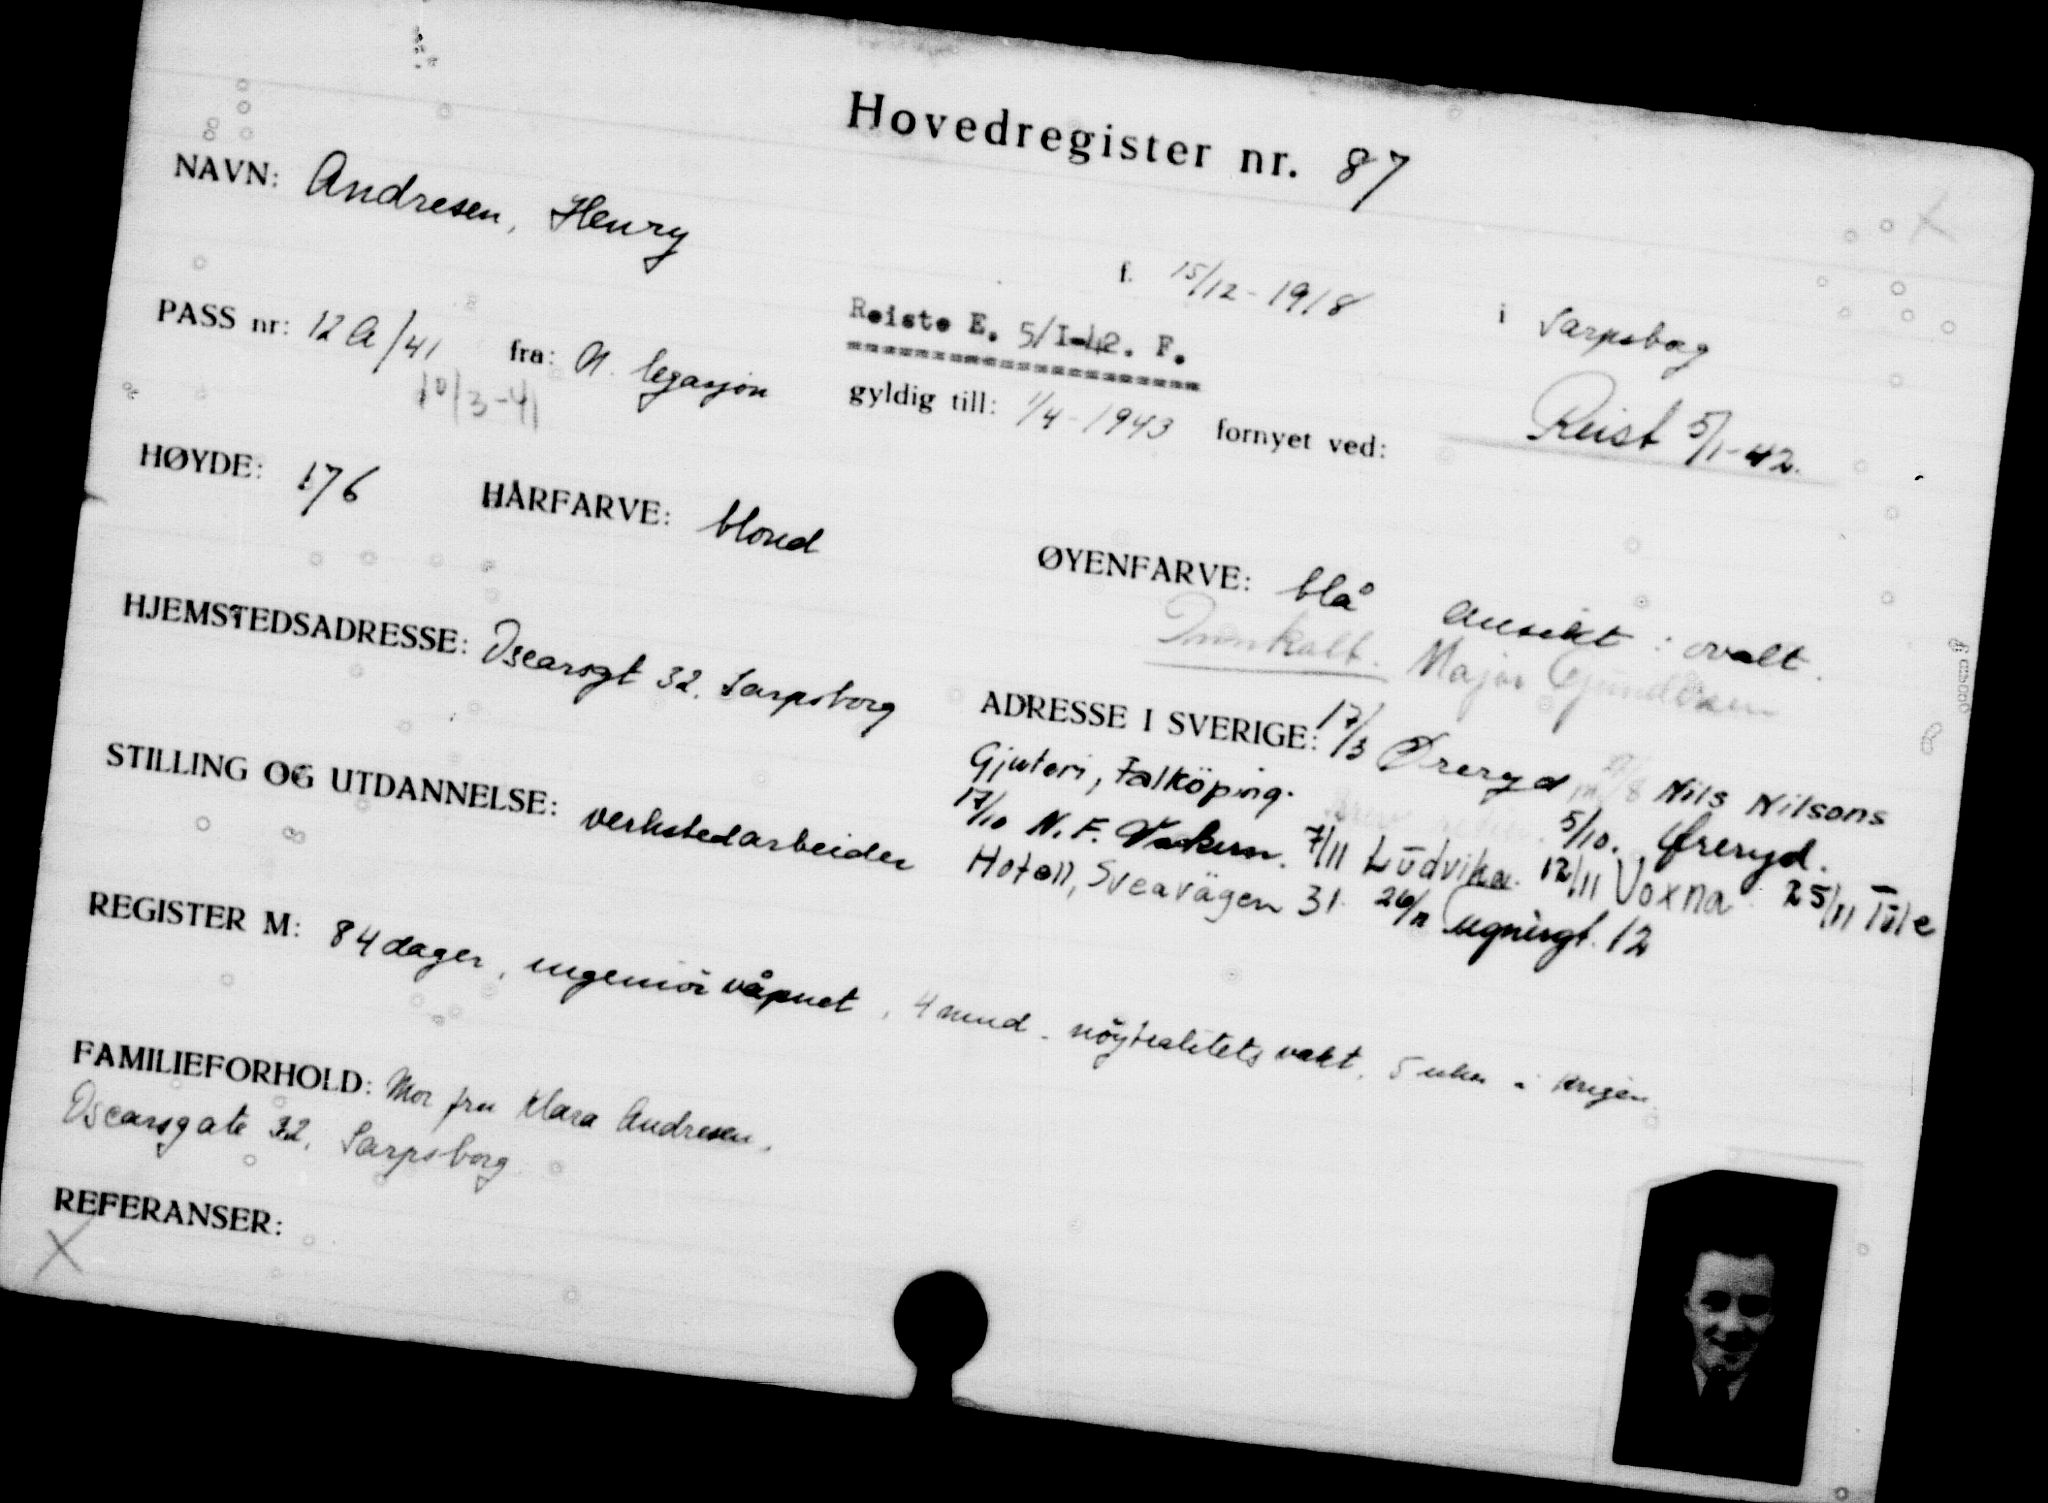 Hovedregister nr. 87
NAVN: Andresen, Henry
f. 15/12-1918 i Sarpsborg
Reiste E. 5/I-42. F.
PASS nr: 12A/41 fra: N. legasjon gyldig till: 1/4-1943 fornyet ved: Reist 5/1-42.
10/3-41
HØYDE: 176 HÅRFARVE: blond ØYENFARVE: blå Ansikt: ovalt.
Innkalt. Major
HJEMSTEDSADRESSE: Oscarsgt 32. Sarpsborg
ADRESSE I SVERIGE: 17/3 Øreryd Nils Nilsons
Gjuteri, Falköping. 5/10. Øreryd.
17/10 N.F. 7/11 Ludvika. 12/11 Voxna 25/11 Tule
Hotell, Sveavägen 31. 26/11 Lugnisgt. 12
STILLING OG UTDANNELSE: verkstedarbeider
REGISTER M: 84 dager, ingeniør våpnet, 4 mnd. nøytralitets vakt, 5 uker i krigen
FAMILIEFORHOLD: Mor fru Klara Andresen,
Oscarsgate 32, Sarpsborg
REFERANSER:
X